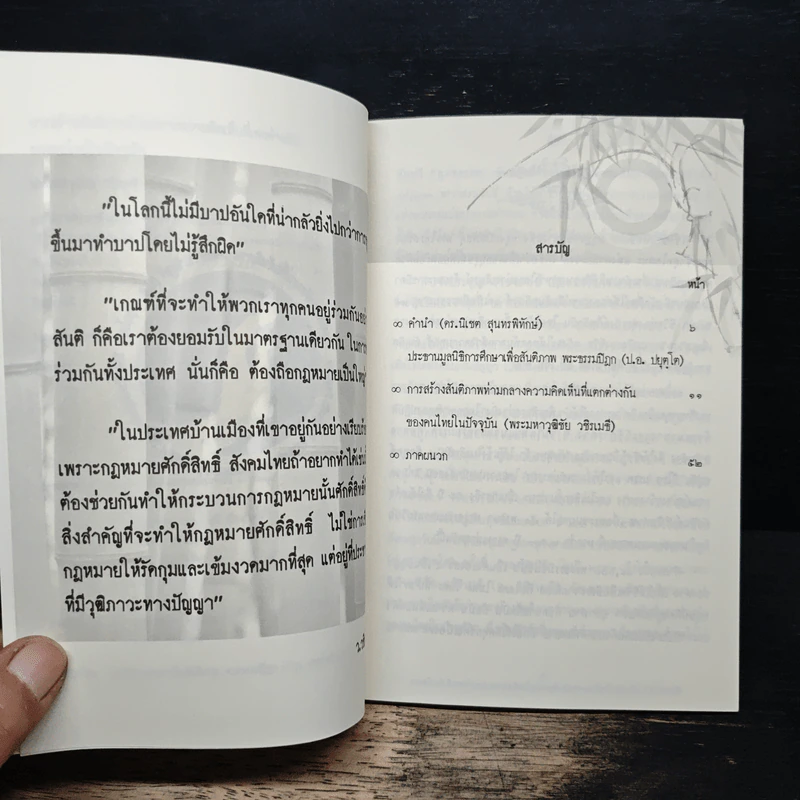 "ในโลกนี้ไม่มีบาปอันใดที่น่ากลัวยิ่งไปกว่าการ
ขึ้นมาทำบาปโดยไม่รู้สึกผิด"
"เกณฑ์ที่จะทำให้พวกเราทุกคนอยู่ร่วมกัน
สันติ ก็คือเราต้องยอมรับในมาตรฐานเดียวกัน
ร่วมกันทั้งประเทศ นั่นก็คือ ต้องถือกฎหมายเป็นใหญ่
"ในประเทศบ้านเมืองที่เขาอยู่กันอย่าง
เพราะกฎหมายศักดิ์สิทธิ์ สังคมไทยถ้าอยากทำได้
ต้องช่วยกันทำให้กระบวนการกฎหมายนั้นศักดิ์สิทธิ์
สิ่งสำคัญที่จะทำให้กฎหมายศักดิ์สิทธิ์ ไม่ใช่
กฎหมายให้รัดกุมและเข้มงวดมากที่สุด แต่อยู่ที่
ที่มีวุฒิภาวะทางปัญญา"
สารบัญ
หน้า
คำนำ (ดร.นิเชต สุนทรพิทักษ์) ๖
ประธานมูลนิธิการศึกษาเพื่อสันติภาพ พระธรรมปิฎก (ป.อ. ปยุตฺโต)
การสร้างสันติภาพท่ามกลางความคิดเห็นที่แตกต่างกัน ๑๑
ของคนไทยในปัจจุบัน (พระมหาวุฒิชัย วชิรเมธี)
ภาคผนวก ๕๒